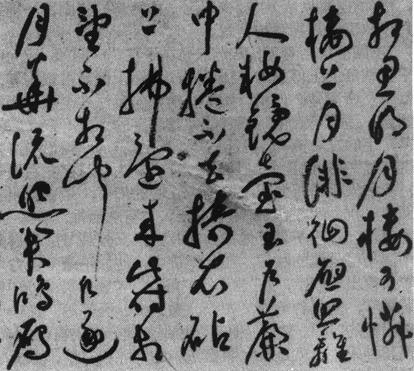 相思明月樓可憐
樓上月徘徊應照離
人妝鏡臺玉户簾
中捲不去擣衣砧
上拂還來此時相
望不相聞願逐
月華流照君鴻雁